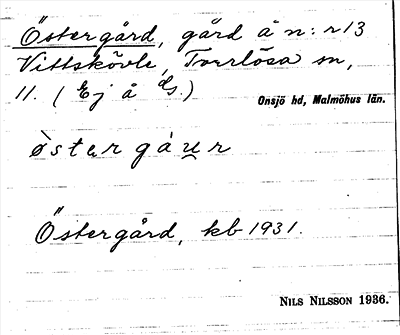 Östergård, gård å n:r 13
Vittskövle, Torrlösa sn,
11. (Ej å ds.)
Onsjö hd, Malmöhus län.
östergáu̯r
Östergård, kb 1931.
NILS NILSSON 1936.